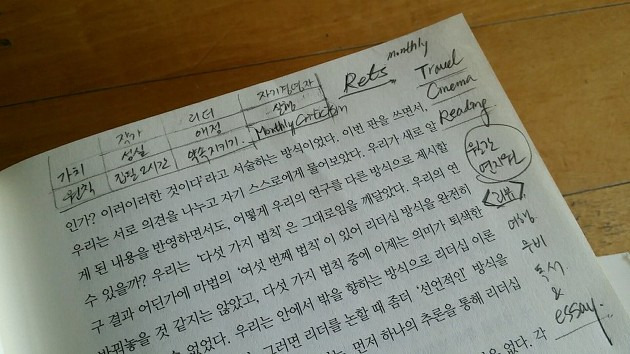 작가 리더 자기경영자
가치 성실 애정 실행
원칙 집필 2시간 약속 지키기. Monthly Criticism
Rets monthly
Travel
Cinema
Reading
월간
<리뷰>
여행
무비
독서
&
essay.
인가? 이러이러한 것이다’라고 서술하는 방식이었다. 이번 판을 쓰면서,
우리는 서로 의견을 나누고 자기 스스로에게 물어보았다. 우리가 새로 알
게 된 내용을 반영하면서도, 어떻게 우리의 연구를 다른 방식으로 제시할
수 있을까? 우리는 ‘다섯 가지 법칙’은 그대로임을 깨달았다. 우리의 연
구 결과 어딘가에 마법의 ‘여섯 번째 법칙’이 있어 리더십 방식을 완전히
바꿔놓을 것 같지는 않았고, 다섯 가지 법칙 중에 이제는 의미가 퇴색한
수 없었다. 우리는 안에서 밖을 향하는 방식으로 리더십 이론
그러면 리더를 논할 때 좀더 ‘선언적인’ 방식을
는, 먼저 하나의 추론을 통해 리더십
은 없다. 각